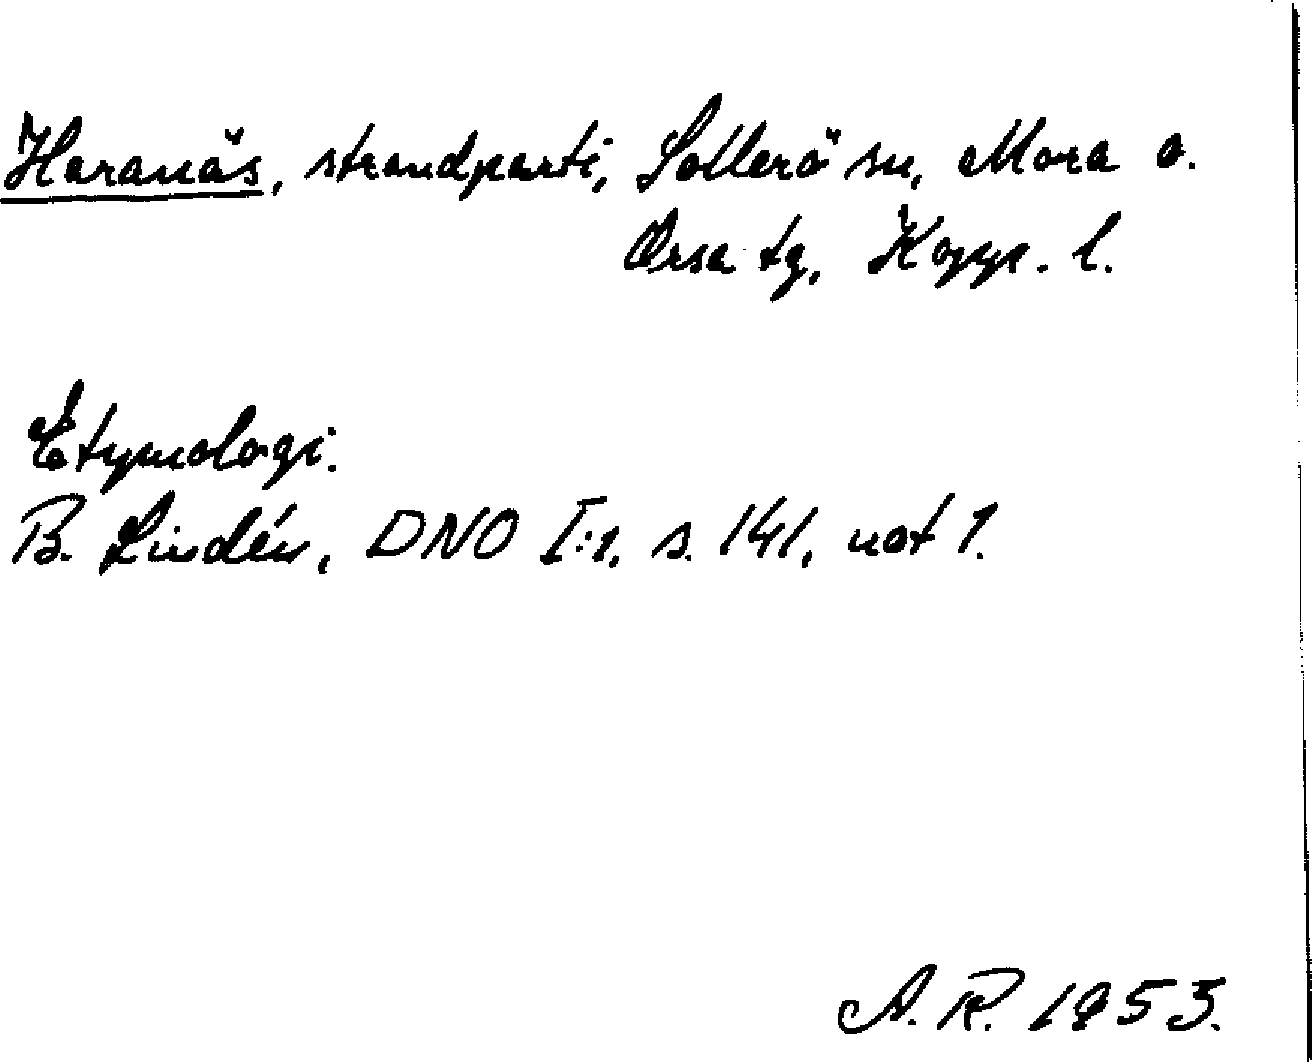 Haranäs, strandparti, Sollerö sn, Mora o.
Orsa tg, Kopp. l.
Etymologi.
B. Lindén, DNO I:1, s. 141, not 1.
A. R. 1953.